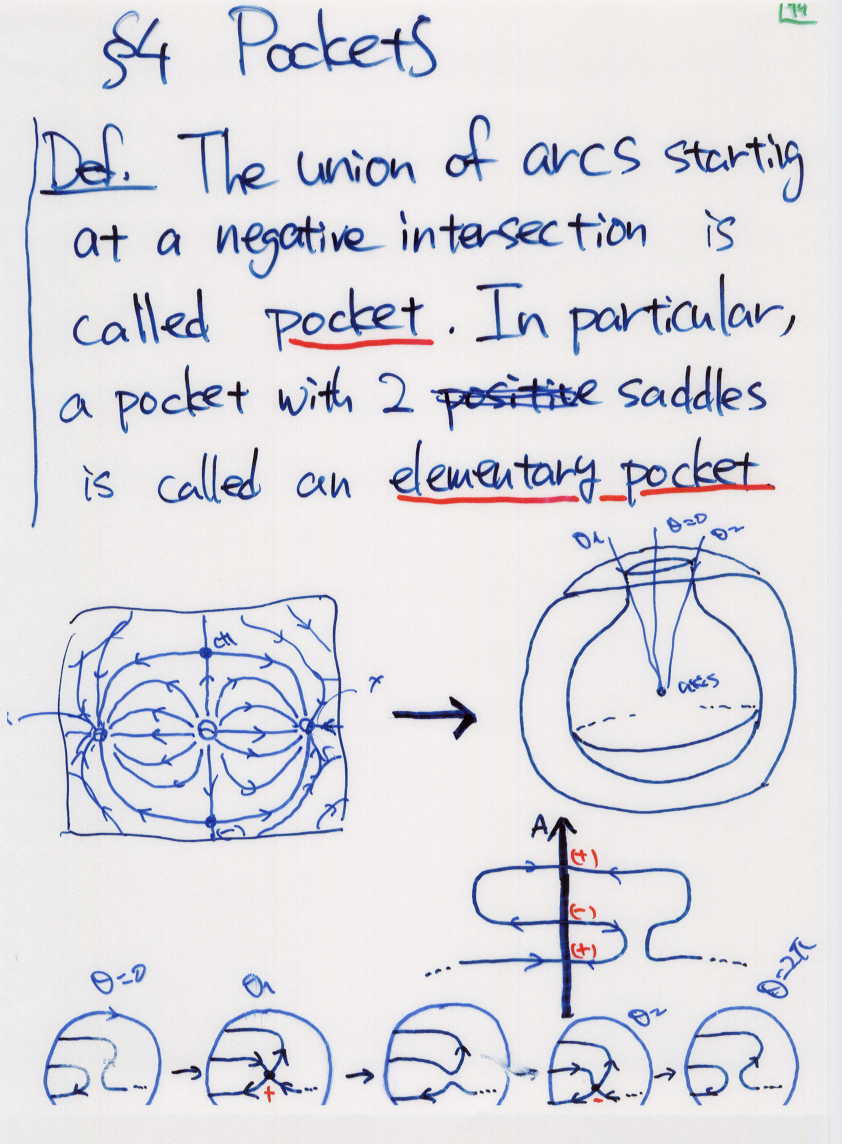 §4 Pockets
Def. The union of arcs starting
at a negative intersection is
called pocket. In particular,
a pocket with 2 positive saddles
is called an elementary pocket
θ1 θ=0 θ2
(+)
arcs
(-)
A
(+)
(-)
(+)
θ=0 θ1 θ2 θ=2π
+ -